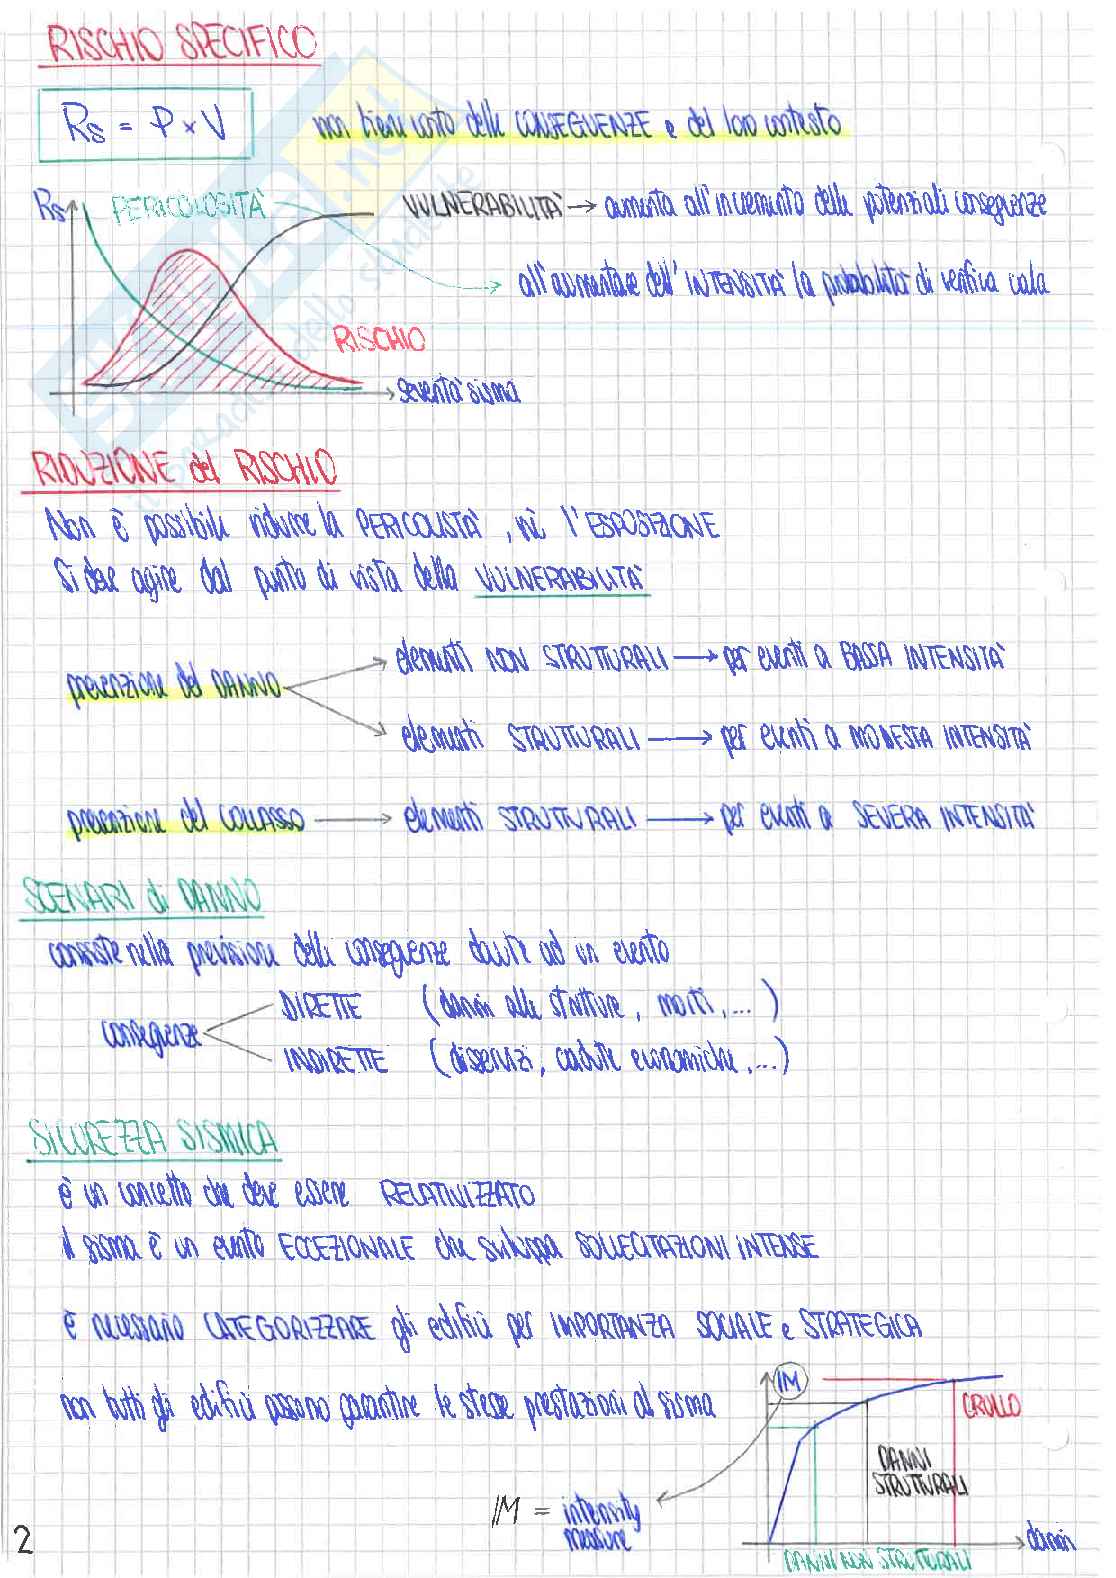 RISCHIO SPECIFICO
Rs = P × V
non tiene conto delle CONSEGUENZE e del loro contesto
Rs
PERICOLOSITÀ
VULNERABILITÀ → aumenta all'incremento delle potenziali conseguenze
all'aumentare dell'INTENSITÀ la probabilità di verifica cala
RISCHIO
severità sisma
RIDUZIONE del RISCHIO
Non è possibile ridurre la PERICOLISTÀ, né l'ESPOSIZIONE
Si deve agire dal punto di vista della VULNERABILITÀ
elementi NON STRUTTURALI → per eventi a BASSA INTENSITÀ
prevenzione del DANNO
elementi STRUTTURALI → per eventi a MODESTA INTENSITÀ
prevenzione del COLLASSO → elementi STRUTTURALI → per eventi a SEVERA INTENSITÀ
SCENARI di DANNO
consiste nella previsione delle conseguenze dovute ad un evento
DIRETTE (danni alle strutture, morti, ...)
conseguenze
INDIRETTE (disservizi, cadute economiche, ...)
SICUREZZA SISMICA
è un concetto che deve essere RELATIVIZZATO
il sisma è un evento ECCEZIONALE che sviluppa SOLLECITAZIONI INTENSE
è necessario CATEGORIZZARE gli edifici per IMPORTANZA SOCIALE e STRATEGICA
non tutti gli edifici possono garantire le stesse prestazioni al sisma
IM
CROLLO
DANNI
STRUTTURALI
IM = intensity
measure
danni
DANNI NON STRUTTURALI
2